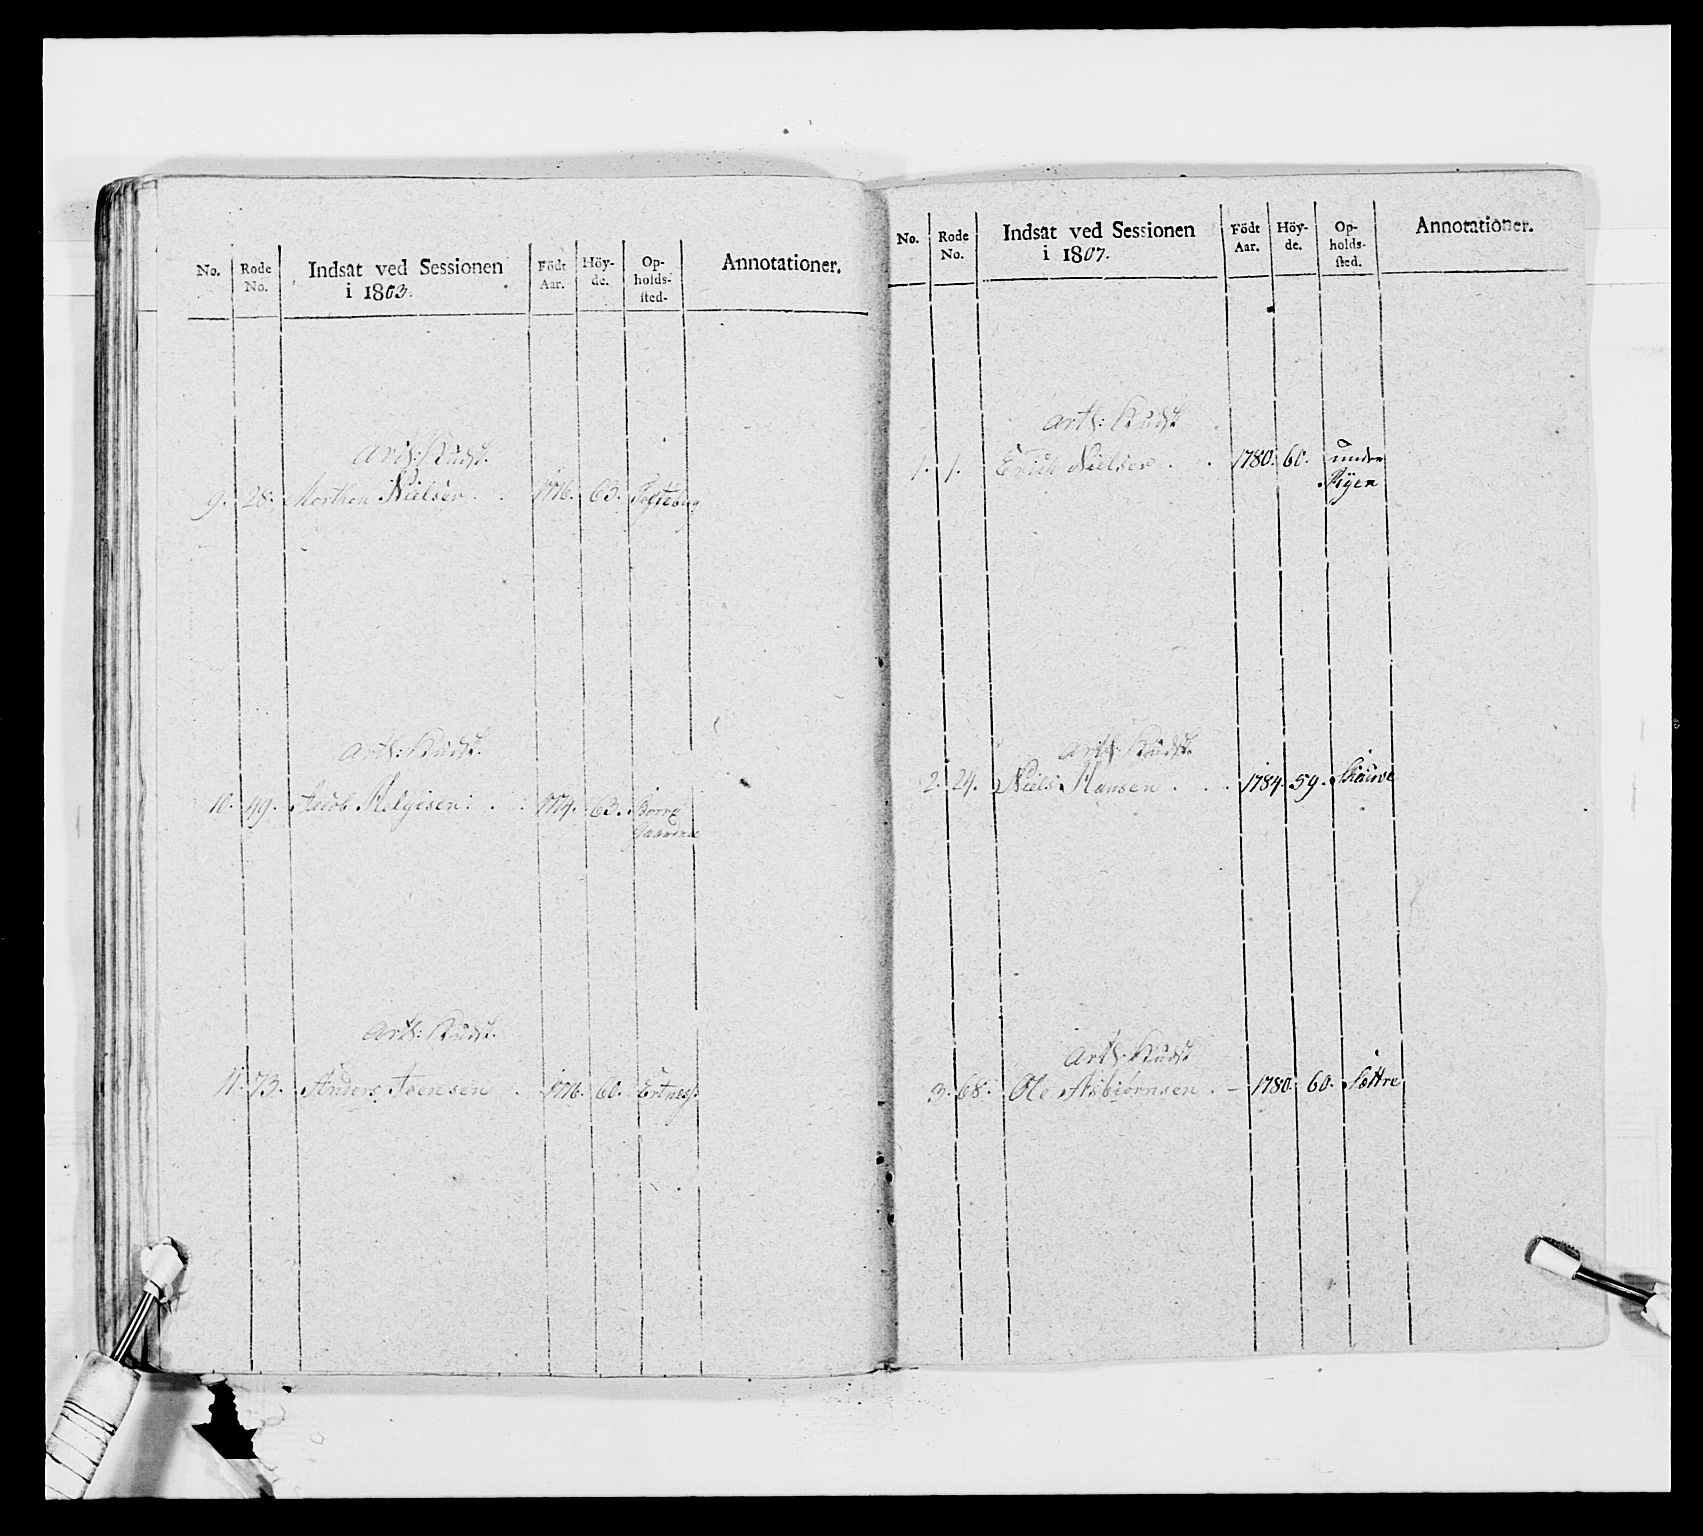 No. Rode No. Indsat ved Sessionen i 1803. Födt Aar. Höy-de. Op-holds-sted. Annotationer.
Art: Kudsk.
9. 28. Morthen Nielsen. 1776. 63.
Art: Kudsk.
10. 49. Jacob Helgesen: 1774. 63.
Art: Kudsk.
11. 73. Anders Joensen. 1776. 60. Ertness
No. Rode No. Indsat ved Sessionen i 1807. Födt Aar. Höy-de. Op-holds-sted. Annotationer.
Art: Kudsk
1. 1. Erich Nielsen. 1780. 60. under
Ryen
Art: Kudsk.
2. 24. Niels Hansen. 1784. 59.
Art: Kudsk
3. 68. Ole Asbiörnsen. – 1780. 60. Sættre